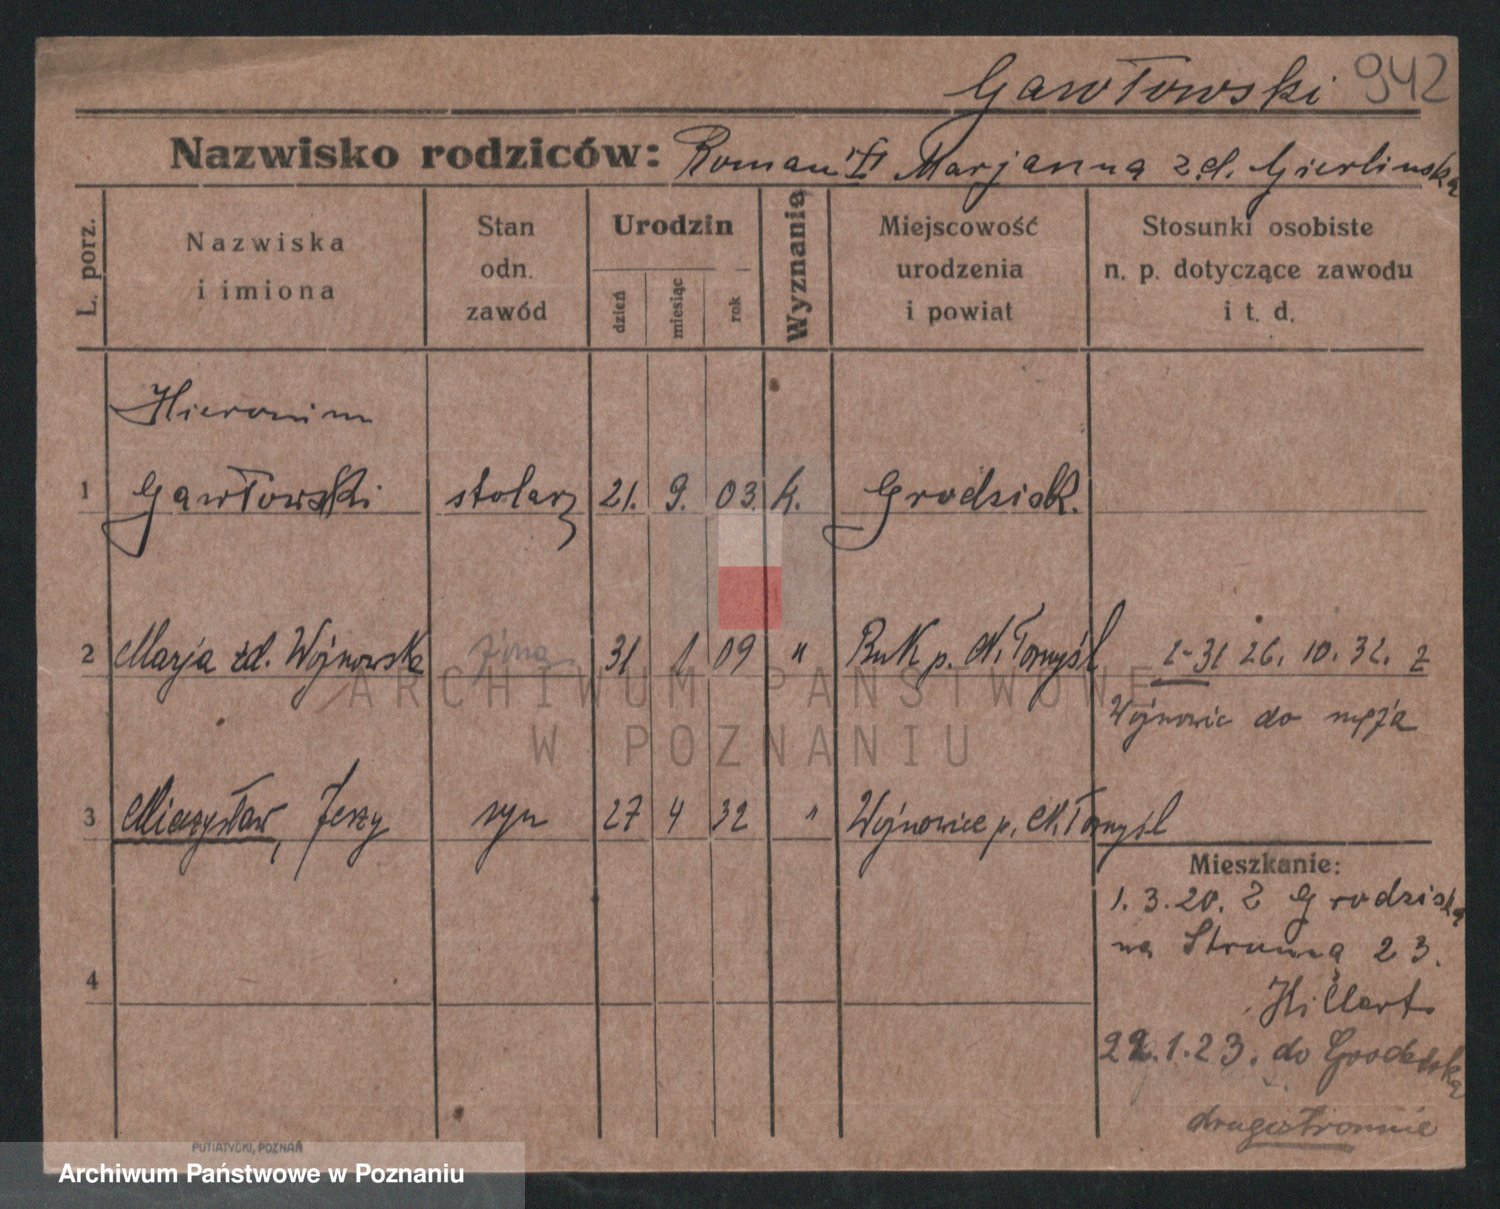 Gawłowski 942
Nazwisko rodziców: Roman i Marjanna z d. Gierlinska
L. porz.
Nazwiska
i imiona
Stan
odn.
zawód
Urodzin
dzień
miesiąc
rok
Wyznanie
Miejscowość
urodzenia
i powiat
Stosunki osobiste
n. p. dotyczące zawodu
i t. d.
Hieronim
1 Gawłowski stolarz 21. 9. 03. k. Grodzisk.
2 Marja zd. Wojnowska żona 31 1 09 " Buk p. N. Tomyśl 2-31 26. 10. 32. z
Wojnowic do męża
3 Mieczysław, Jerzy syn 27 4 32 " Wojnowice p. N. Tomyśl
Mieszkanie:
1. 3. 20. z Grodziska
na Strumą 23.
4
Hillert
22. 1. 23. do Grodziska
drugostronnie
PUTIATYCKI, POZNAŃ
ARCHIWUM PAŃSTWOWE
W POZNANIU
Archiwum Państwowe w Poznaniu